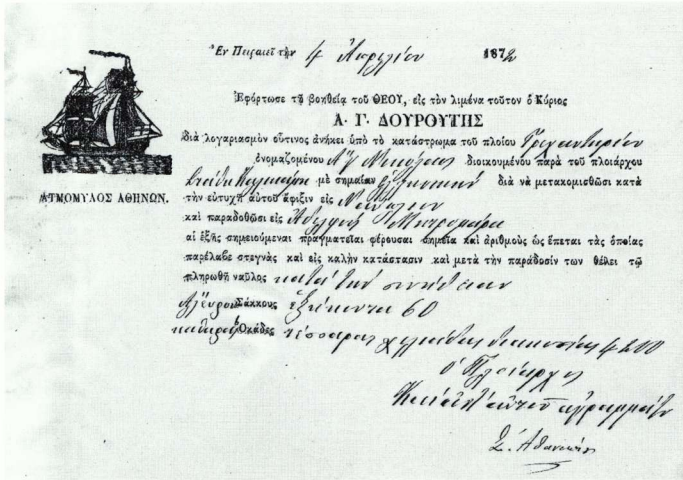 Ἐν Πειραιεῖ τὴν 4 Ἀπριλίου 1872
Ἐφόρτωσε τῇ βοηθείᾳ τοῦ ΘΕΟΥ, εἰς τὸν λιμένα τοῦτον ὁ Κύριος
Α. Γ. ΔΟΥΡΟΥΤΗΣ
διὰ λογαριασμὸν οὗτινος ἀνήκει ὑπὸ τὸ κατάστρωμα τοῦ πλοίου
ὀνομαζομένου Ἁγ Νικόλαος διοικουμένου παρὰ τοῦ πλοιάρχου
μὲ σημαίαν Ἑλληνικὴν διὰ νὰ μετακομισθῶσι κατὰ
ΑΤΜΟΜΥΛΟΣ ΑΘΗΝΩΝ.
τὴν εὐτυχῆ αὐτοῦ ἄφιξιν εἰς Ναύπλιον
καὶ παραδοθῶσι εἰς
αἱ ἑξῆς σημειούμεναι πραγματεῖαι φέρουσαι σημεῖα καὶ ἀριθμοὺς ὡς ἔπεται τὰς ὁποίας
παρέλαβε στεγνὰς καὶ εἰς καλὴν κατάστασιν καὶ μετὰ τὴν παράδοσίν των θέλει τῷ
πληρωθῇ ναῦλος κατὰ τὴν συνήθειαν
Σάκκους ἑξήκοντα 60
Ὀκάδες τέσσαρας χιλιάδας διακοσίας 4200
ὁ Πλοίαρχος